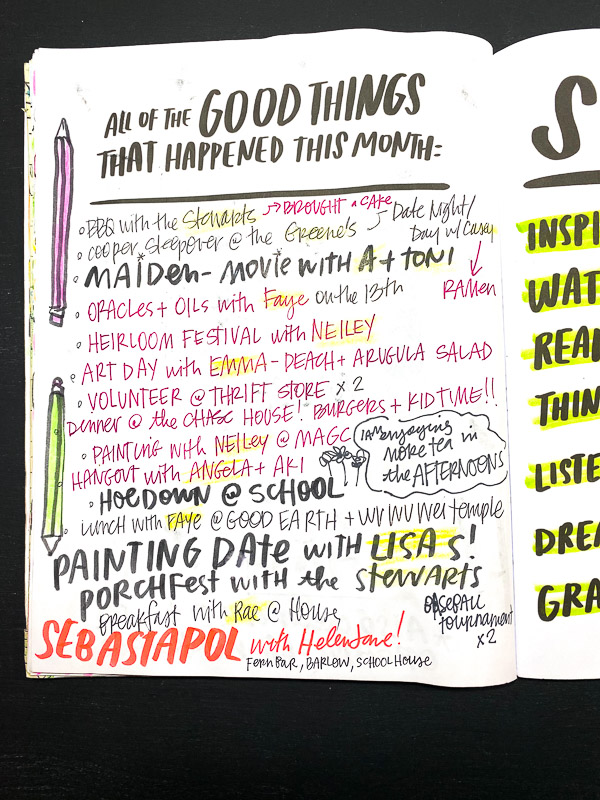 ALL OF THE GOOD THINGS
THAT HAPPENED THIS MONTH:
BBQ with the Stewarts → BROUGHT a CAKE
cooper sleepover @ the Greene's Date Night/
Day w/ Casey
MAIDEN - MOVIE WITH A + TONI
RAMen
ORACLES + OILS with Faye on the 13th
HEIRLOOM FESTIVAL with NEILEY
ART DAY with EMMA - PEACH + ARUGULA SALAD
VOLUNTEER @ THRIFT STORE x 2
Dinner @ the CHASE HOUSE! BURGERS + KID TIME!!
PAINTING with NEILEY @ MAGC
I AM enjoying
more tea in
the AFTERNOONS
HANGOUT with ANGELA + AKI
HOEDOWN @ SCHOOL
LUNCH with FAYE @ GOOD EARTH + temple
PAINTING DATE with LISA S!
PORCHFEST with the STEWARTS
Breakfast with Rae @ House
BASEBALL
tournament
x2
SEBASTAPOL with HelenJane!
FERN BAR, BARLOW, SCHOOL HOUSE
S
INSPI
WAT
REA
THIN
LISTE
DREA
GRA